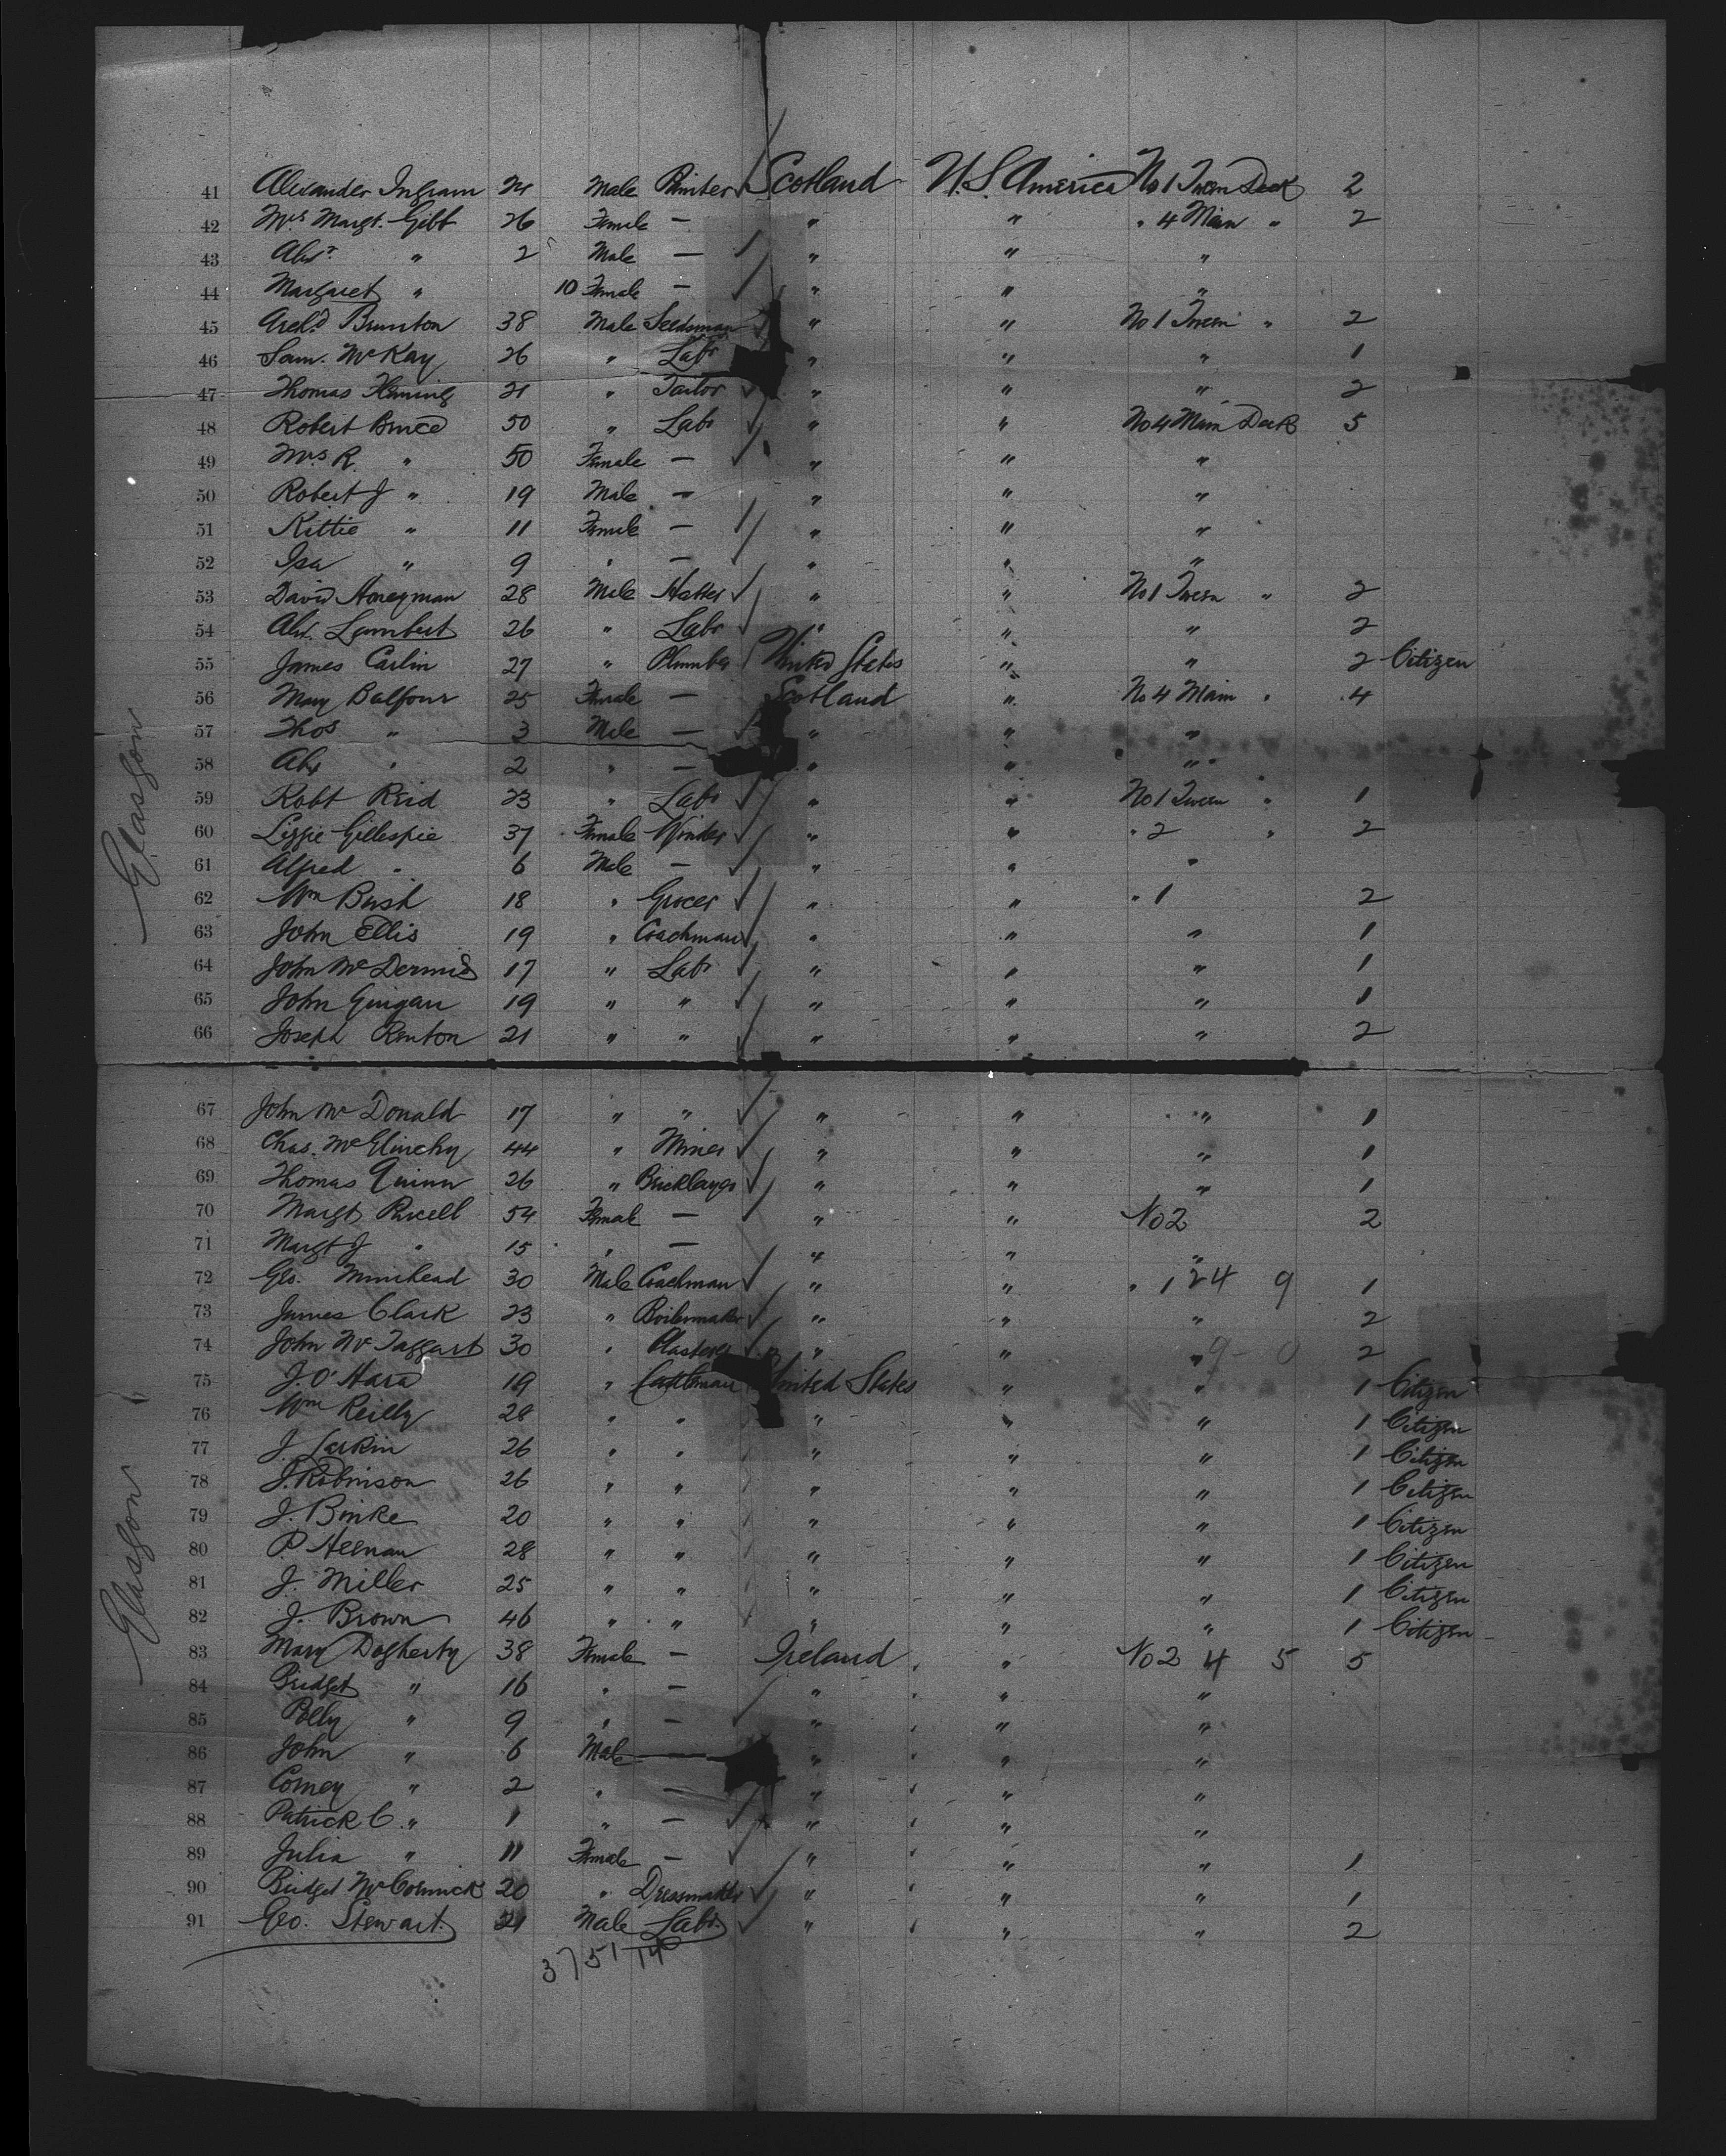 41 Alexander Ingram 24 Male Painter Scotland U.S. America No 1 Tween Deck 2
42 Mrs Margt. Gibb 26 Female — " " " 4 Main " 2
43 Alexr " 2 Male — " " "
44 Margaret " 10 Female — " " "
45 Archd Brunton 38 Male Seedsman " " No 1 Tween " 2
46 Sam. McKay 26 " Labr " " " 1
47 Thomas Fleming 21 " Tailor " " " 2
48 Robert Bruce 50 " Labr " " No 4 Main Deck 5
49 Mrs R. " 50 Female — " " "
50 Robert J " 19 Male — " " "
51 Kittie " 11 Female — " " "
52 Isa " 9 " — " " "
53 David Honeyman 28 Male Hatter " " No 1 Tween " 2
54 Alex. Lambert 26 " Labr " " " 2
55 James Carlin 27 " Plumber United States " " 2 Citizen
56 Mary Balfour 25 Female — Scotland " No 4 Main " 4
57 Thos " 3 Male — " " "
58 Alex " 2 " — " " "
59 Robt Reid 23 " Labr " " No 1 Tween " 1
60 Lizzie Gillespie 37 Female Winder " " " 2 " 2
61 Alfred " 6 Male — " " "
62 Wm Bush 18 " Grocer " " " 1 2
63 John Ellis 19 " Coachman " " " 1
64 John McDermid 17 " Labr " " " 1
65 John Guigan 19 " " " " " 1
66 Joseph Renton 21 " " " " " 2
67 John McDonald 17 " " " " " 1
68 Chas. McGlinchy 44 " Miner " " " 1
69 Thomas Quinn 26 " Bricklayer " " " 1
70 Margt Purcell 54 Female — " " No 2 2
71 Margt J " 15 " — " " "
72 Geo. Muirhead 30 Male Coachman " " " 1 24 9 1
73 James Clark 23 " Boilermaker " " " 2
74 John McTaggart 30 " Plasterer " " " 9 - 0 2
75 J. O'Hara 19 " Cattleman United States " " 1 Citizen
76 Wm Reilly 28 " " " " " 1 Citizen
77 J. Larkin 26 " " " " " 1 Citizen
78 J. Robinson 26 " " " " " 1 Citizen
79 J. Binke 20 " " " " " 1 Citizen
80 P. Heenan 28 " " " " " 1 Citizen
81 J. Miller 25 " " " " " 1 Citizen
82 J. Brown 46 " " " " " 1 Citizen
83 Mary Dogherty 38 Female — Ireland " No 2 4 5 5
84 Bridget " 16 " — " " "
85 Polly " 9 " — " " "
86 John " 6 Male — " " "
87 Corney " 2 " — " " "
88 Patrick C. " 1 " — " " "
89 Julia " 11 Female — " " " 1
90 Bridget McCormick 20 " Dressmaker " " " 1
91 Geo. Stewart 21 Male Labr. " " " 2
37 51 14
Glasgow
Glasgow